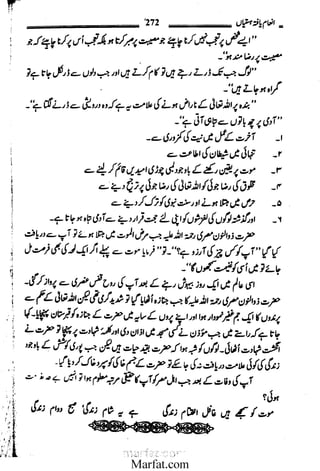 انعام یافتہ ہستیاں 272
"ایسے شخص پر تعجب نہیں کرنا چاہئے جو مصیبت پر صبر کرتا ہو بلکہ تعجب اُس پر کرنا چاہئے کہ جو
مصیبت پر رضامند ہو"۔
"لوگ جب تک ڈرتے رہتے ہیں تو کام کرتے ہیں اور جب دلوں سے ڈر نکل جاتا ہے تو
گمراہ ہو جاتے ہیں"۔
"بندہ پر اللہ تعالیٰ کے ناراض ہونے کی علامت یہ ہے کہ وہ درویشی سے ڈرنے لگتا ہے"۔
"آدمی پر چھ باتوں سے تباہی آتی ہے"۔
۱۔ آخرت کے عمل میں نیت کی کمزوری سے۔
۲۔ تنہائی میں شیطان کی اطاعت سے
۳۔ موت پر یقین رکھنے کے باوجود لمبی چوڑی امیدیں قائم کر لینے سے
۴۔ مخلوق کی رضا جوئی کو اللہ تعالیٰ کی رضا جوئی پر ترجیح دینے سے
۵۔ حرص میں مبتلا ہونے اور سنت نبوی کو ترک کر دینے سے۔
۶۔ اور گذشتہ لوگوں کی لغزشوں کو اپنے لئے حجت قرار دینے سے آدمی تباہ ہو جاتا ہے۔
حضرت ذوالنون مصری رحمۃ اللہ علیہ جب مرض الموت میں مبتلا ہوئے تو آپ سے دریافت
کیا گیا "آپ کو کس چیز کی آرزو ہے؟"۔ تو "فرمایا موت سے پہلے اگر ایک لمحہ کی بھی فرصت مل
جائے تو میں اُسی کو غنیمت سمجھوں گا"۔
اسی عالم میں ایک روز بیہوش رہنے کے بعد آپ کی روح قفس عنصری سے پرواز کر گئی۔
حضرت ذوالنون مصری رحمۃ اللہ علیہ کا جب جنازہ اُٹھایا گیا تو شدید گرمی تھی لیکن اللہ تعالیٰ کے حکم سے
پرندوں کا ایک جم غفیر نمودار ہوا اور اپنے پروں کے سایہ میں حضرت کے جنازہ کو قبرستان پہنچایا۔ کہا
جاتا ہے کہ راستے میں جب مؤذن نے کسی مسجد میں اذان دی اور کلمۂ شہادت پر پہنچا تو حضرت نے
انگشت شہادت اٹھائی۔ لوگوں کو شبہ ہوا کہ حضرت بقید حیات ہیں لیکن جب پوری کوشش کے باوجود
زندگی کی کوئی علامت دریافت نہ کی جا سکی تو حضرت کے جسم خاکی کو سپرد خاک کر دیا گیا۔
آپ کی وفات کے بعد جب اہل مصر کو آپ کا حقیقی مرتبہ معلوم ہوا تو انہیں بے حد ندامت
ہوئی؟
موت کو سمجھے ہیں غافل اختتام زندگی ہے یہ شام زندگی صبح دوام زندگی
marfat.com
Marfat.com